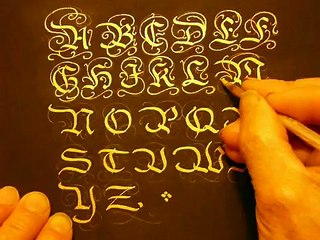 A B C D E F
G H I K L M
N O P Q
S T U W
Y Z